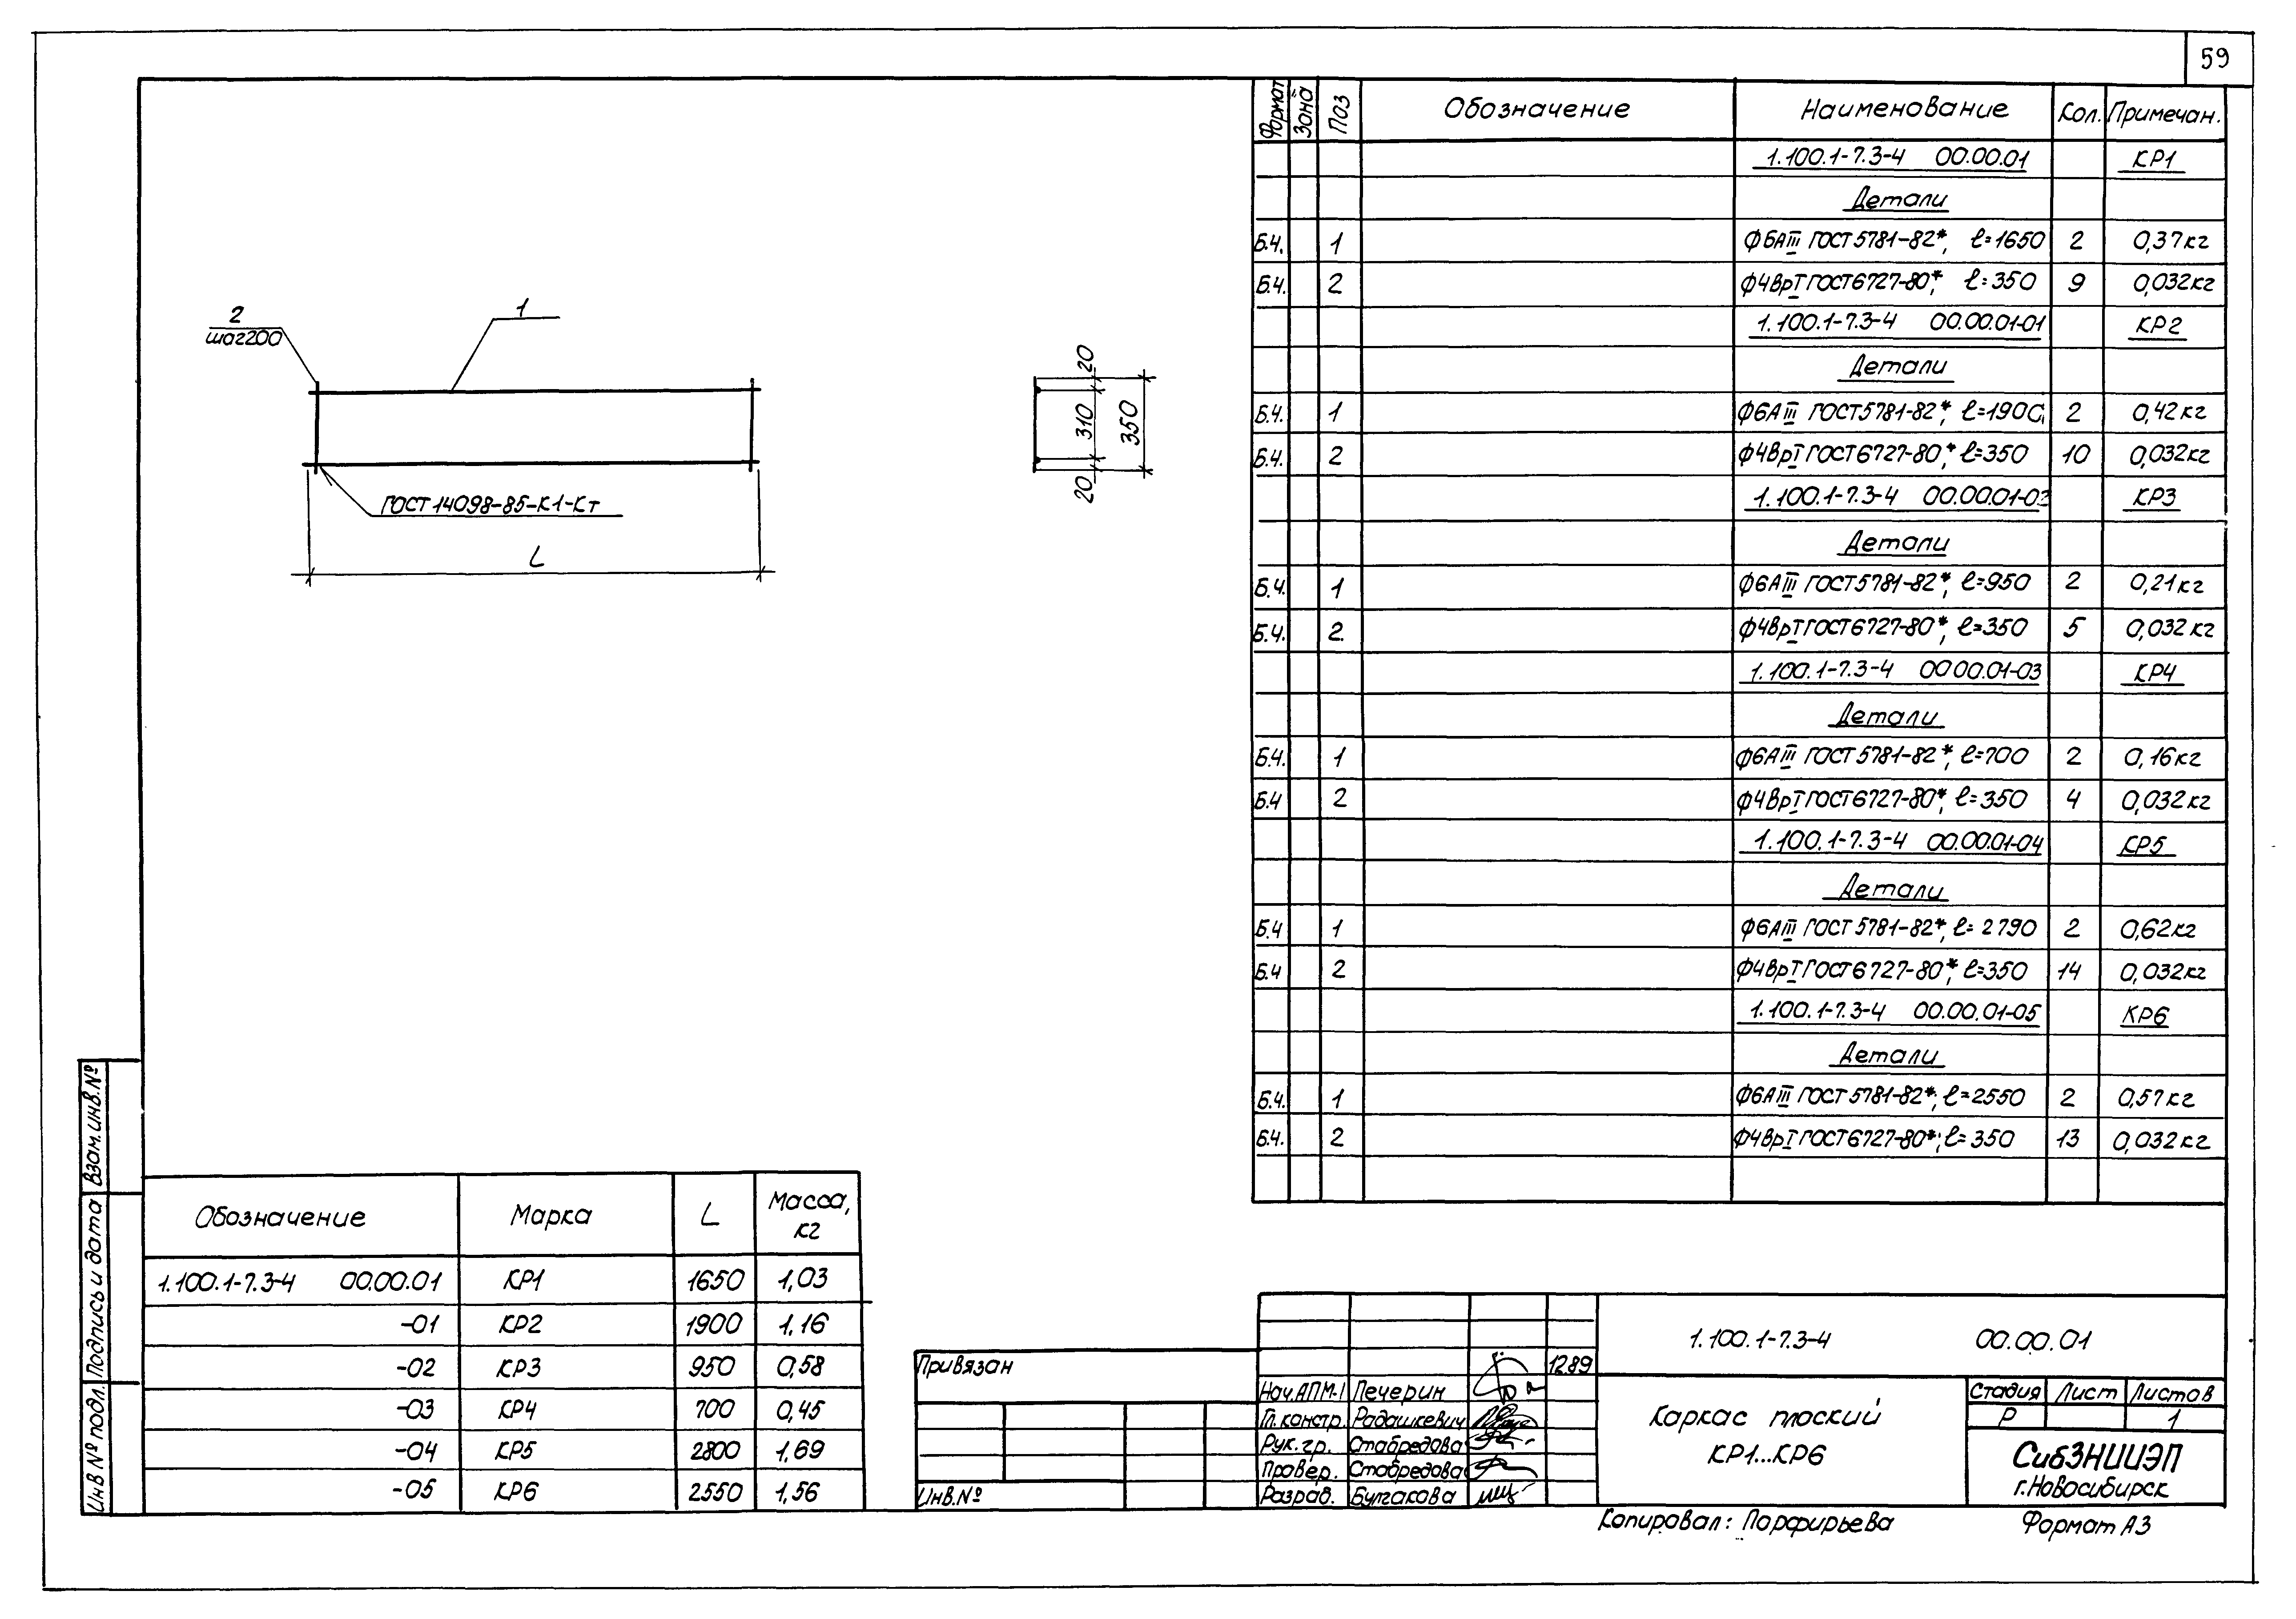 59
Формат Зона Поз Обозначение Наименование Кол. Примечан.
1.100.1-7.3-4 00.00.01 КР1
Детали
Б.Ч. 1 Ф6АIII ГОСТ 5781-82*, ℓ=1650 2 0,37кг
Б.Ч. 2 Ф4ВрI ГОСТ6727-80*, ℓ=350 9 0,032кг
1.100.1-7.3-4 00.00.01-01 КР2
Детали
Б.Ч. 1 Ф6АIII ГОСТ5781-82*, ℓ=1900 2 0,42кг
Б.Ч. 2 Ф4ВрI ГОСТ6727-80,* ℓ=350 10 0,032кг
1.100.1-7.3-4 00.00.01-02 КР3
Детали
Б.Ч. 1 Ф6АIII ГОСТ5781-82*, ℓ=950 2 0,21кг
Б.Ч. 2. Ф4ВрI ГОСТ6727-80*, ℓ=350 5 0,032кг
1.100.1-7.3-4 00.00.01-03 КР4
Детали
Б.Ч. 1 Ф6АIII ГОСТ5781-82*, ℓ=700 2 0,16кг
Б.Ч 2 Ф4ВрI ГОСТ6727-80*, ℓ=350 4 0,032кг
1.100.1-7.3-4 00.00.01-04 КР5
Детали
Б.Ч 1 Ф6АIII ГОСТ5781-82*, ℓ=2790 2 0,62кг
Б.Ч 2 Ф4ВрI ГОСТ6727-80*, ℓ=350 14 0,032кг
1.100.1-7.3-4 00.00.01-05 КР6
Детали
Б.Ч. 1 Ф6АIII ГОСТ5781-82*, ℓ=2550 2 0,57кг
Б.Ч. 2 Ф4ВрI ГОСТ6727-80*, ℓ=350 13 0,032кг
2
шаг200
1
ГОСТ14098-85-К1-Кт
L
20
310
350
20
Обозначение Марка L Масса,
кг
1.100.1-7.3-4 00.00.01 КР1 1650 1,03
-01 КР2 1900 1,16
-02 КР3 950 0,58
-03 КР4 700 0,45
-04 КР5 2800 1,69
-05 КР6 2550 1,56
Взам.инв.№
Подпись и дата
Инв № подл.
Привязан
Инв.№
12.89
Нач.АПМ-1 Печерин
Гл.констр. Радашкевич
Рук.гр. Стабредова
Провер. Стабредова
Разраб. Булгакова
1.100.1-7.3-4 00.00.01
Каркас плоский
КР1...КР6
Стадия Лист Листов
Р 1
СибЗНИИЭП
г.Новосибирск
Копировал: Порфирьева
Формат А3